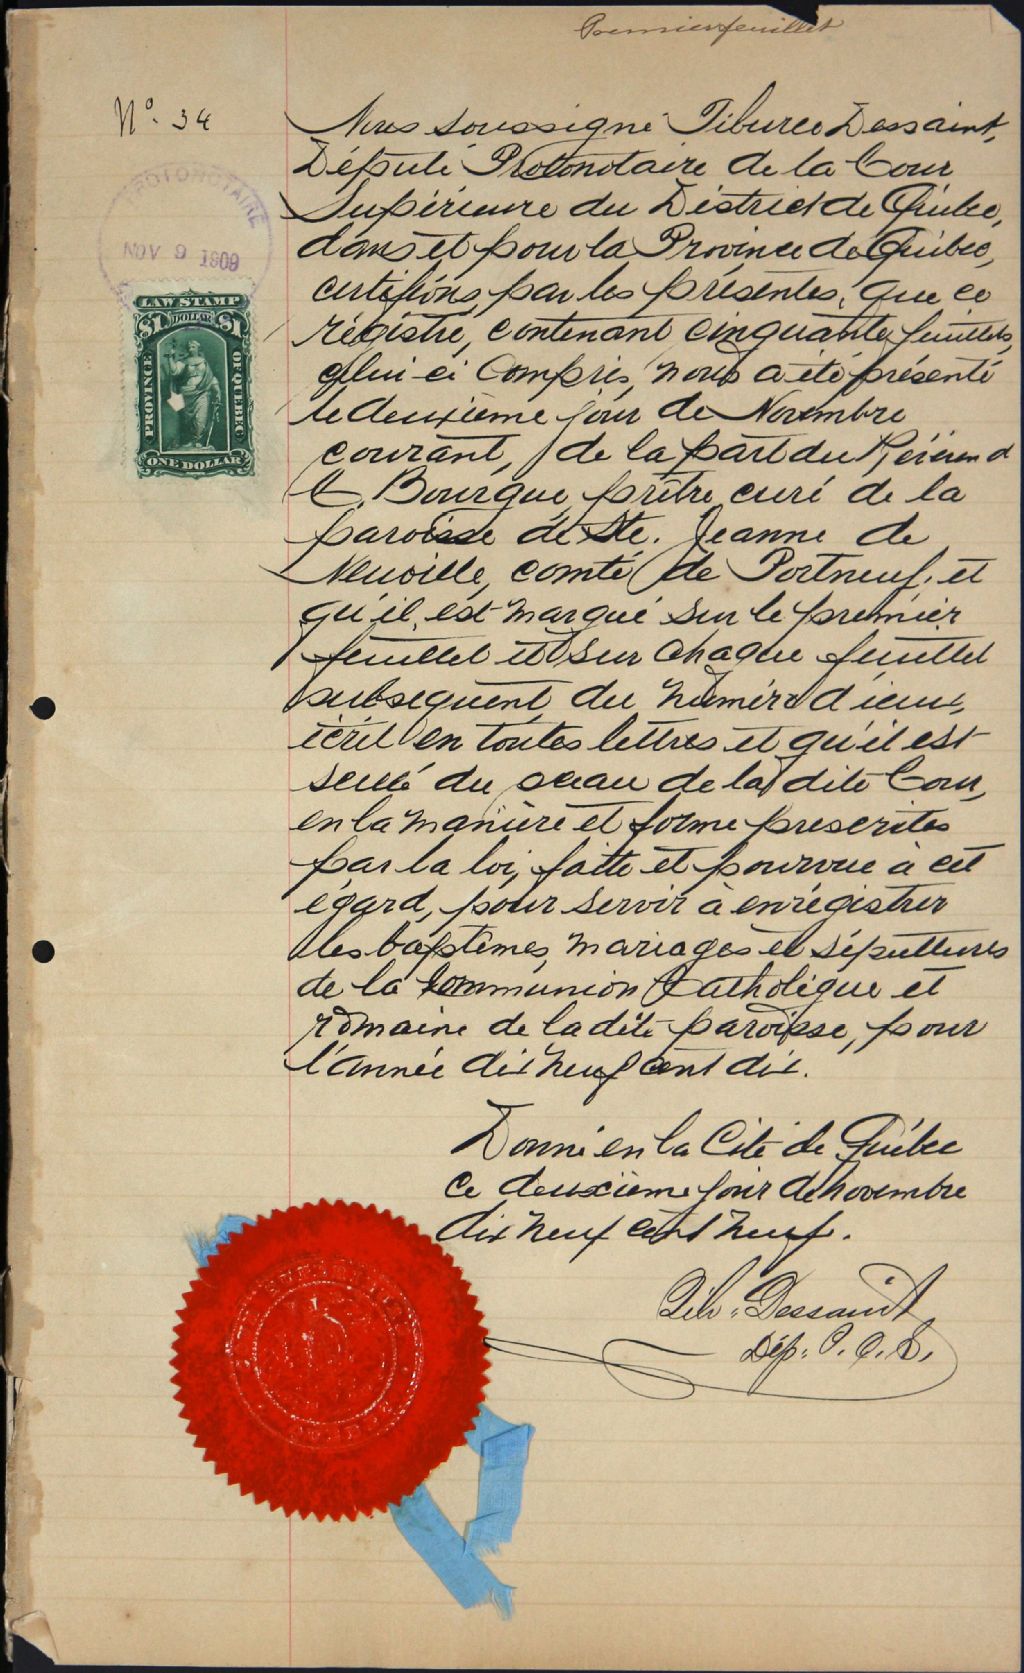 Premier feuillet
No. 34
Nous soussigné Tiburce Dessaint,
Député Protonotaire de la Cour
Supérieure du District de Québec,
dans et pour la Province de Québec,
certifions par les présentes, que ce
régistre, contenant cinquante feuillets,
celui ci compris, nous a été présenté
le deuxième jour de Novembre
courant, de la part du Révérend
Bourque, prêtre, curé de la
paroisse de Ste. Jeanne de
Neuville, comté de Portneuf, et
qu'il est marqué sur le premier
feuillet et sur chaque feuillet
subsequent, du numéro d'iceux,
écrit en toutes lettres et qu'il est
scellé du sceau de la dite Cour,
en la manière et forme prescrites
par la loi, faite et pourvue à cet
égard, pour servir à enrégistrer
les baptêmes, mariages et sépultures
de la communion Catholique et
romaine de la dite paroisse, pour
l'année dix neuf cent dix.
Donné en la Cité de Québec
ce deuxième jour de novembre
dix neuf cent neuf.
Tib. Dessaint
Dép. P. C. S.
PROTONOTAIRE
NOV 9 1909
LAW STAMP
$1 DOLLAR $1
PROVINCE
OF QUEBEC
ONE DOLLAR